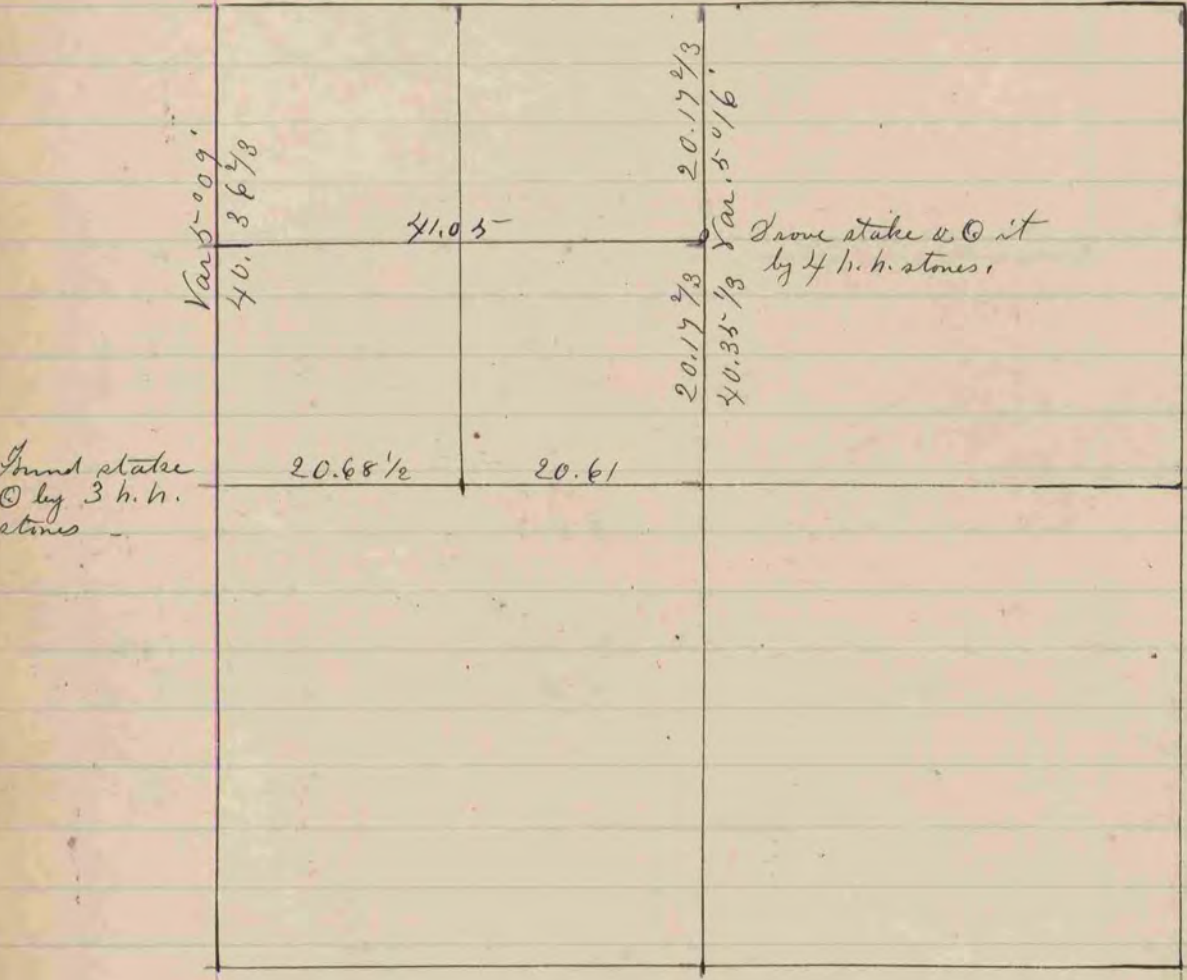 Var 5°09'
40.36 2/3
41.05
20.17 2/3
20.17 2/3
Var. 5°16'
40.35 1/3
Drove stake & ⊙ it
by 4 h.h. stones.
Found stake
⊙ by 3 h.h.
stones
20.68 1/2
20.61